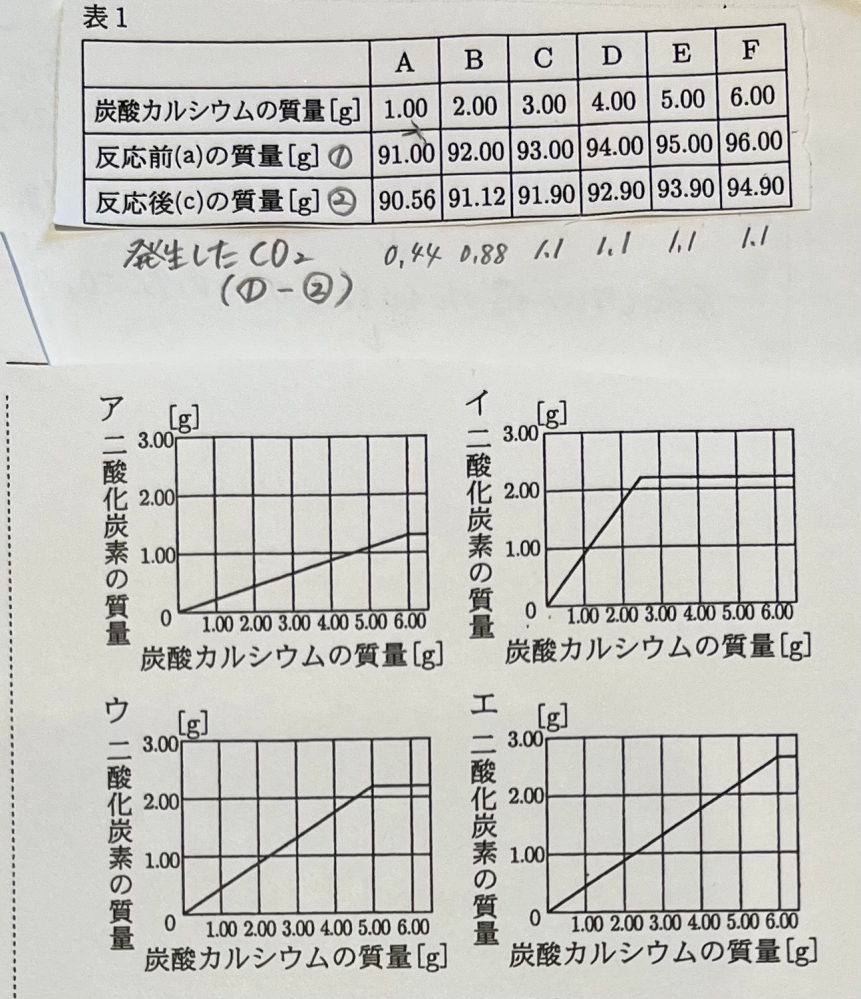 表1
A B C D E F
炭酸カルシウムの質量[g] 1.00 2.00 3.00 4.00 5.00 6.00
反応前(a)の質量[g] ① 91.00 92.00 93.00 94.00 95.00 96.00
反応後(c)の質量[g] ② 90.56 91.12 91.90 92.90 93.90 94.90
発生したCO₂ 0,44 0,88 1.1 1.1 1.1 1.1
(①-②)
ア
[g]
二酸化炭素の質量
3.00
2.00
1.00
0
1.00 2.00 3.00 4.00 5.00 6.00
炭酸カルシウムの質量[g]
イ
[g]
二酸化炭素の質量
3.00
2.00
1.00
0
1.00 2.00 3.00 4.00 5.00 6.00
炭酸カルシウムの質量[g]
ウ
[g]
二酸化炭素の質量
3.00
2.00
1.00
0
1.00 2.00 3.00 4.00 5.00 6.00
炭酸カルシウムの質量[g]
エ
[g]
二酸化炭素の質量
3.00
2.00
1.00
0
1.00 2.00 3.00 4.00 5.00 6.00
炭酸カルシウムの質量[g]